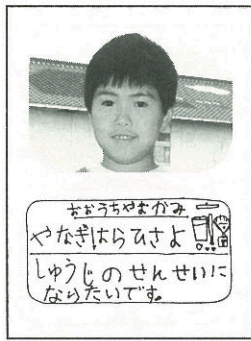 おおうちやまかみ
やなぎはらひさよ
しゅうじのせんせいに
なりたいです。